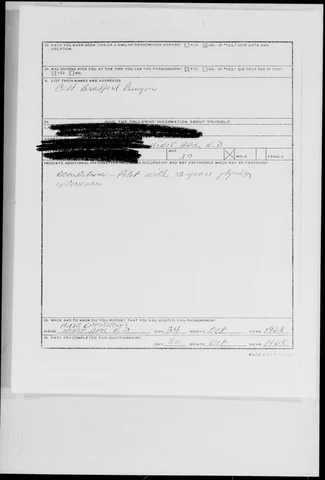 32. HAVE YOU EVER SEEN THIS OR A SIMILAR PHENOMENON BEFORE? YES NO. IF "YES" GIVE DATE AND
LOCATION.
33. WAS ANYONE WITH YOU AT THE TIME YOU SAW THE PHENOMENON? YES NO. IF "YES" DID THEY SEE IT TOO?
YES NO.
A. LIST THEIR NAMES AND ADDRESSES
Capt Bradford Runyon
34. GIVE THE FOLLOWING INFORMATION ABOUT YOURSELF
Minot AFB, N.D
AGE
MALE FEMALE
INDICATE ADDITIONAL INFORMATION OCCUPATION AND ANY EXPERIENCE WHICH MAY BE PERTINENT.
Occupation - Pilot with years flying
experience
35. WHEN AND TO WHOM DID YOU REPORT THAT YOU HAD NOTED THIS PHENOMENON?
Base Operations
NAME Minot AFB N.D DAY 24 MONTH Oct YEAR 1968
36. DATE YOU COMPLETED THIS QUESTIONNAIRE. DAY 30 MONTH Oct YEAR 1968